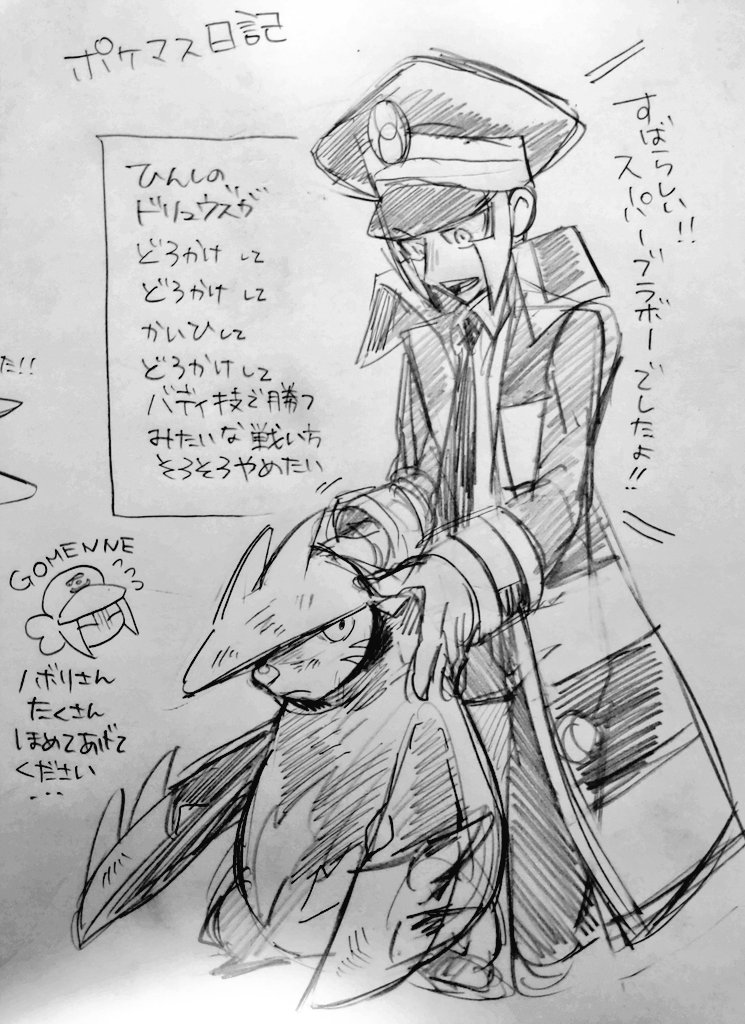 ポケマス日記
すばらしい!!
スーパーブラボーでしたよ!!
ひんしの
ドリュウズが
どろかけして
どろかけして
かいひして
どろかけして
バディ技で勝つ
みたいな戦い方
そろそろやめたい
た!!
GOMENNE
ノボリさん
たくさん
ほめてあげて
ください
...